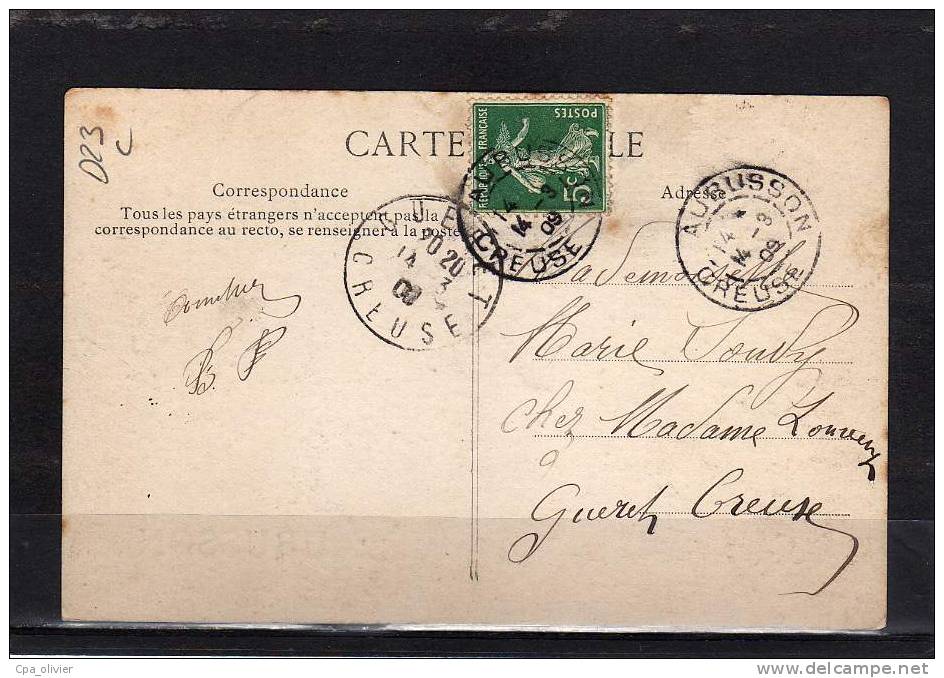 D23
CARTE LE
Correspondance
Tous les pays étrangers n'acceptent pas la
correspondance au recto, se renseigner à la poste
RÉPUBLIQUE FRANÇAISE
POSTES
5c
CREUSE
14 -3
09
GUERET
20 20
14 3
CREUSE
Adresse
AUBUSSON
14 -3
09
CREUSE
Mademoiselle
Marie
chez Madame
à
Gueret Creuse
Cpa_olivier
delcampe.net